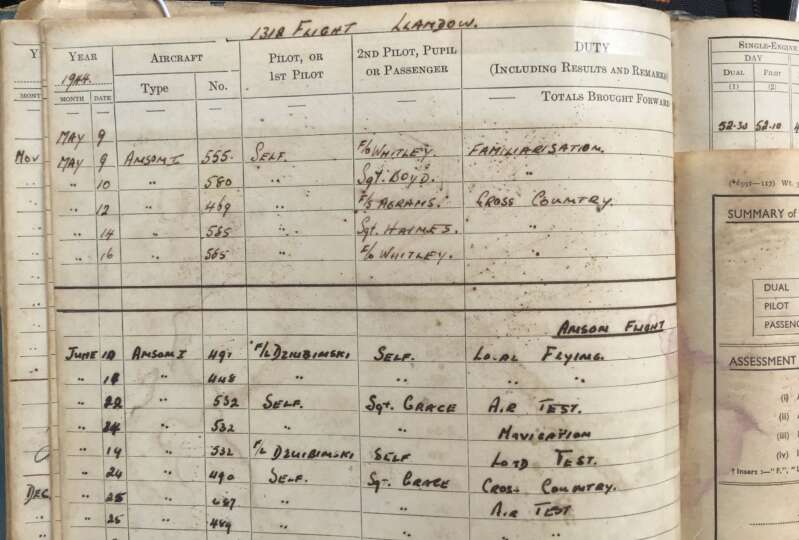 1318 FLIGHT LLANDOW.
YEAR AIRCRAFT PILOT, OR 1ST PILOT 2ND PILOT, PUPIL OR PASSENGER DUTY (INCLUDING RESULTS AND REMARKS)
1944. Type No.
MONTH DATE
TOTALS BROUGHT FORWARD
MAY 9
MAY 9 ANSON I 555. SELF. F/O WHITLEY. FAMILIARISATION.
" 10 " 580 " Sgt. BOYD. "
" 12 " 469 " F/S ABRAMS. CROSS COUNTRY.
" 14 " 585 " Sgt. HAINES. "
" 16 " 565 " F/O WHITLEY. "
ANSON FLIGHT
JUNE ANSON I 491 F/L DZIUBINSKI SELF. LOCAL FLYING.
" " 448 " " " "
" 22 " 532 SELF. Sgt. GRACE AIR TEST.
" 24 " 532 " " NAVIGATION
" 19 " 532 F/L DZIUBINSKI SELF LOAD TEST.
" 24 " 490 SELF. Sgt. GRACE CROSS COUNTRY.
" 25 " 487 " " AIR TEST
" 25 " 489 " " "
Y
MONT
NOV
DEC
SINGLE-ENGINE
DAY
DUAL PILOT
(1) (2)
52.30 52.10
SUMMARY of
DUAL
PILOT
PASSENG
ASSESSMENT
(i)
(ii)
(iii)
(iv)
† Insert :—"F.", "L